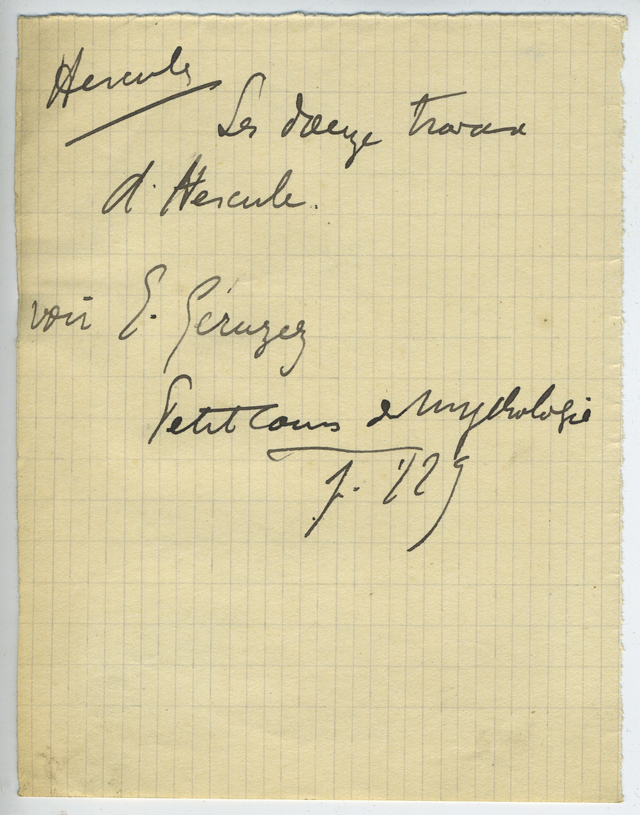 Hercule
Les douze travaux
d'Hercule.
voir E. Géruzez
Petit Cours de Mythologie
p. 129